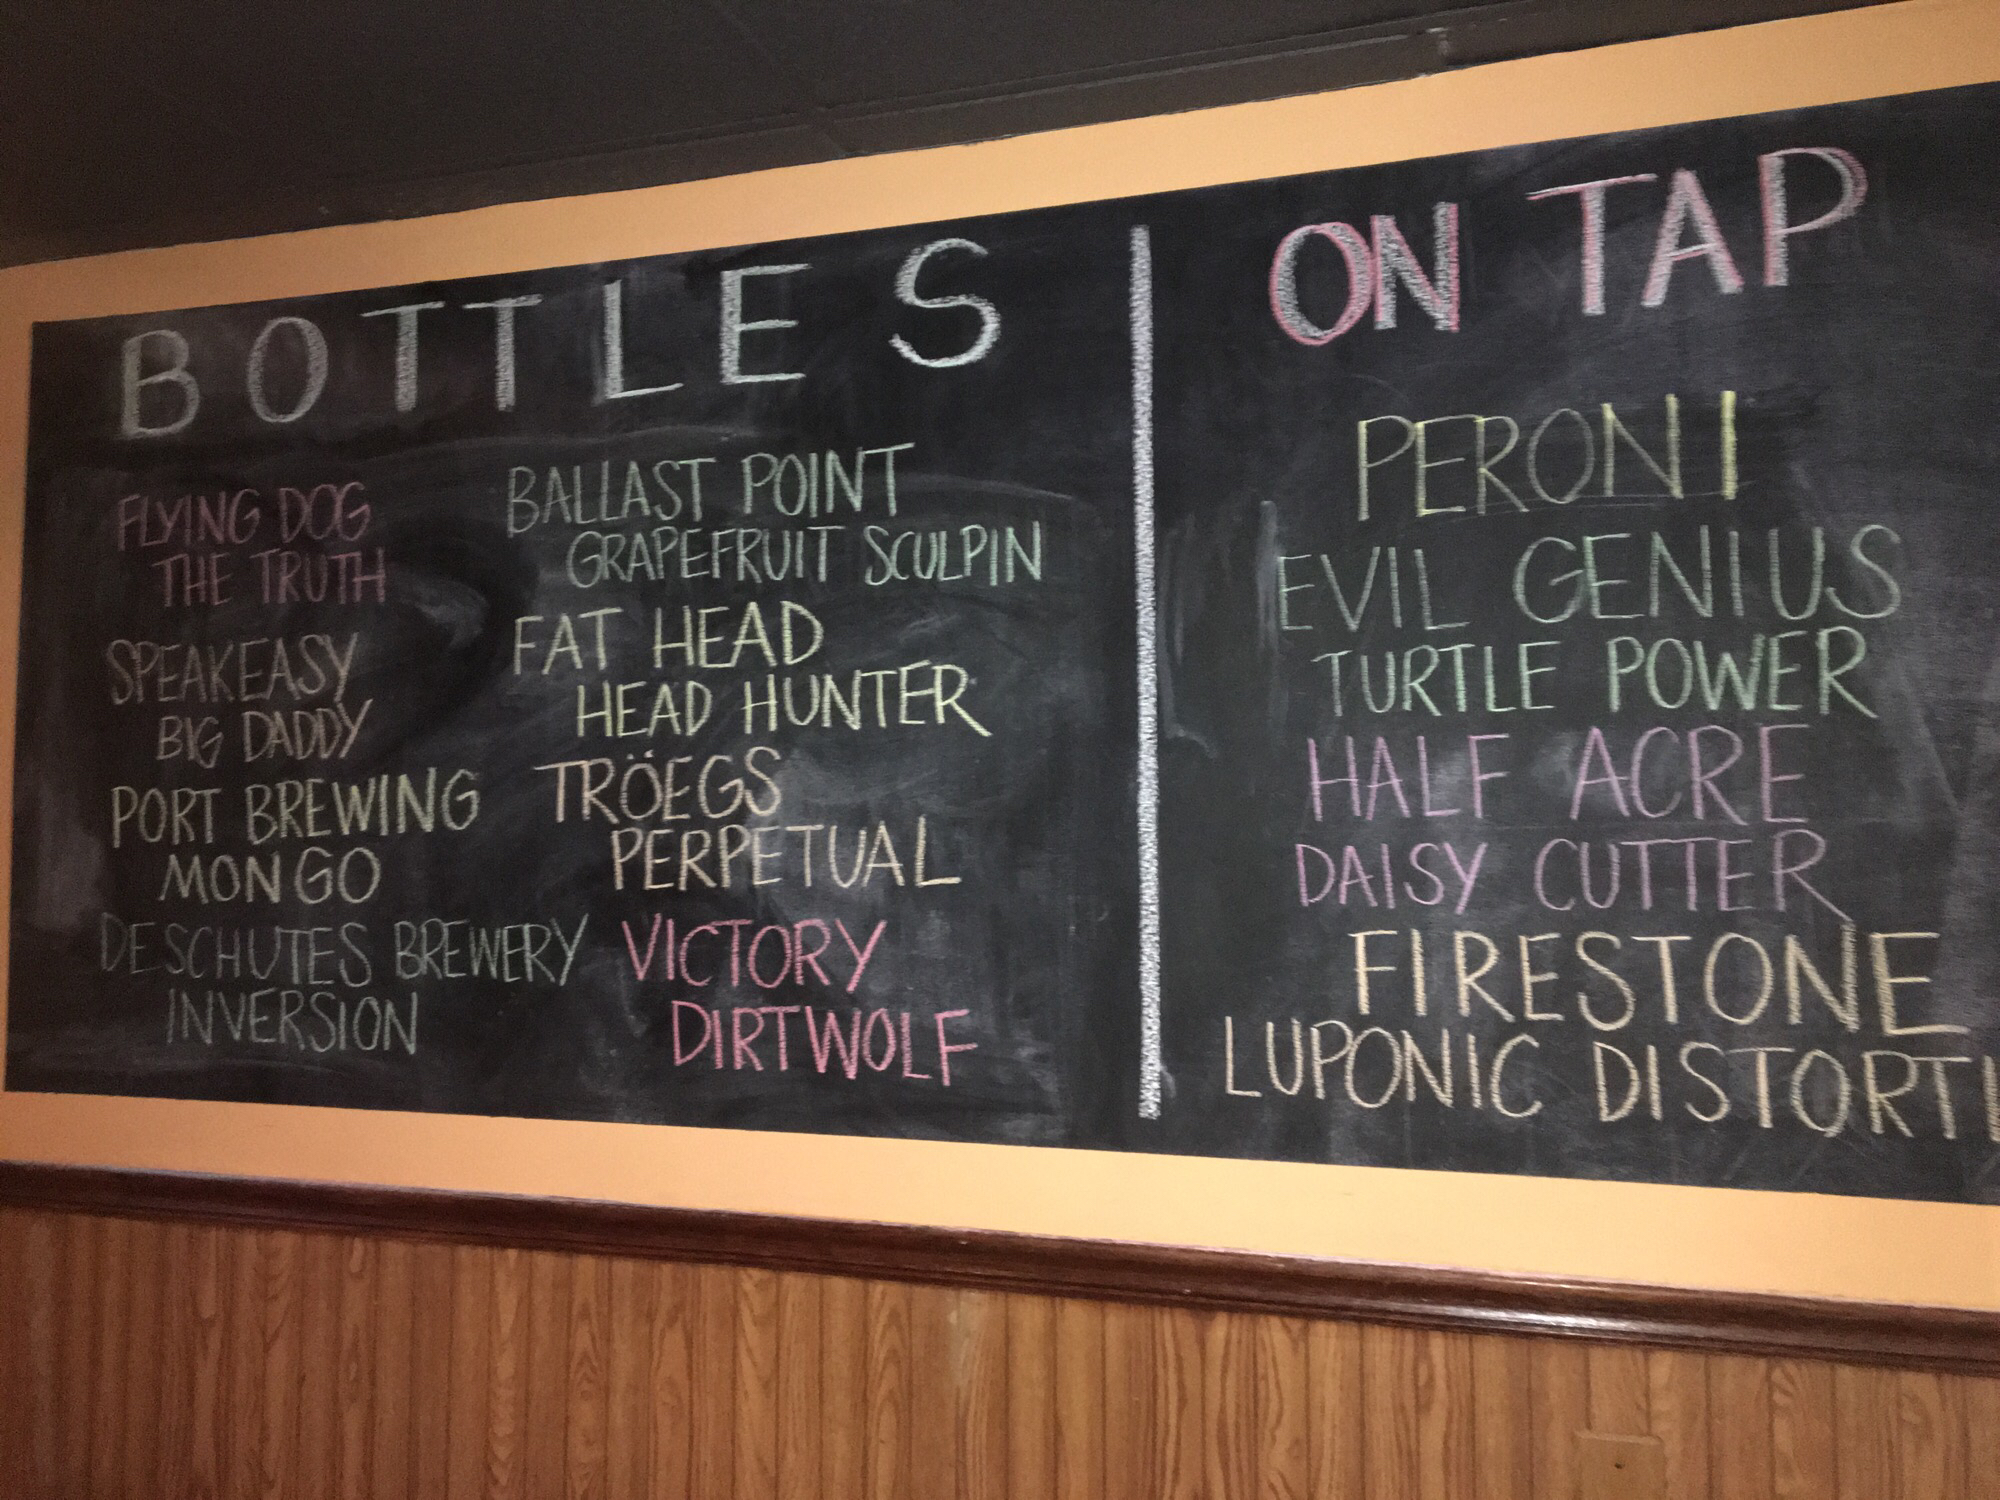 BOTTLES
FLYING DOG
THE TRUTH
SPEAKEASY
BIG DADDY
PORT BREWING
MONGO
DESCHUTES BREWERY
INVERSION
BALLAST POINT
GRAPEFRUIT SCULPIN
FAT HEAD
HEAD HUNTER
TRÖEGS
PERPETUAL
VICTORY
DIRTWOLF
ON TAP
PERONI
EVIL GENIUS
TURTLE POWER
HALF ACRE
DAISY CUTTER
FIRESTONE
LUPONIC DISTORTI